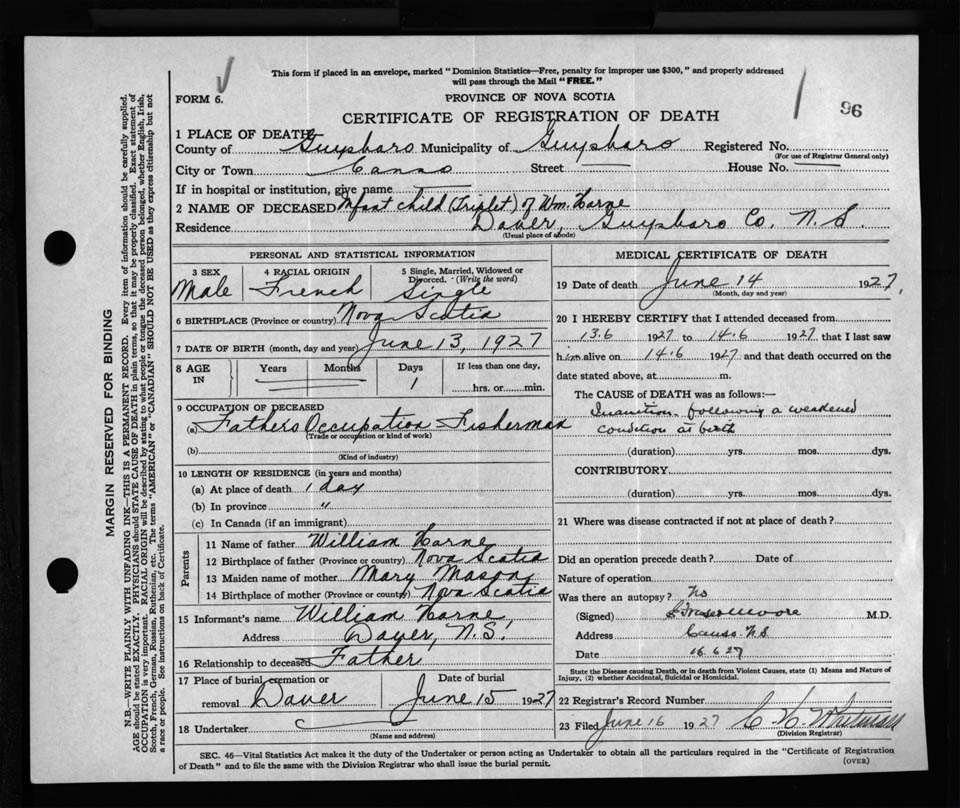 This form if placed in an envelope, marked "Dominion Statistics—Free, penalty for improper use $300," and properly addressed
will pass through the Mail "FREE."
FORM 6.
PROVINCE OF NOVA SCOTIA
96
CERTIFICATE OF REGISTRATION OF DEATH
1 PLACE OF DEATH
County of Guysboro Municipality of Guysboro Registered No.
(For use of Registrar General only)
City or Town Canso Street — House No. —
If in hospital or institution, give name —
2 NAME OF DECEASED Infant child (Triplet) of Wm.
Residence Guysboro Co. N.S.
(Usual place of abode)
PERSONAL AND STATISTICAL INFORMATION
3 SEX
Male
4 RACIAL ORIGIN
French
5 Single, Married, Widowed or
Divorced. (Write the word)
Single
6 BIRTHPLACE (Province or country) Nova Scotia
7 DATE OF BIRTH (month, day and year) June 13, 1927
8 AGE
IN
Years
Months
Days
1
If less than one day,
hrs. or min.
9 OCCUPATION OF DECEASED
(a) Fathers Occupation Fisherman
(Trade or occupation or kind of work)
(b)
(Kind of industry)
10 LENGTH OF RESIDENCE (in years and months)
(a) At place of death 1 day
(b) In province "
(c) In Canada (if an immigrant)
Parents
11 Name of father William
12 Birthplace of father (Province or country) Nova Scotia
13 Maiden name of mother Mary Mason
14 Birthplace of mother (Province or country) Nova Scotia
15 Informant's name William
Address N.S.
16 Relationship to deceased Father
17 Place of burial, cremation or
removal
Date of burial
June 15 1927
18 Undertaker
(Name and address)
MEDICAL CERTIFICATE OF DEATH
19 Date of death June 14 1927
(Month, day and year)
20 I HEREBY CERTIFY that I attended deceased from
13.6 1927 to 14.6 1927 that I last saw
him alive on 14.6 1927 and that death occurred on the
date stated above, at m.
The CAUSE OF DEATH was as follows:
Inanition following a weakened
condition at birth
(duration) yrs. mos. dys.
CONTRIBUTORY
(duration) yrs. mos. dys.
21 Where was disease contracted if not at place of death?
Did an operation precede death? Date of
Nature of operation
Was there an autopsy? No
(Signed) Moore M.D.
Address Canso N.S.
Date 16.6.27
State the Disease causing Death, or in death from Violent Causes, state (1) Means and Nature of
Injury, (2) whether Accidental, Suicidal or Homicidal.
22 Registrar's Record Number
23 Filed June 16 1927
(Division Registrar)
SEC. 46—Vital Statistics Act makes it the duty of the Undertaker or person acting as Undertaker to obtain all the particulars required in the "Certificate of Registration
of Death" and to file the same with the Division Registrar who shall issue the burial permit.
(OVER)
MARGIN RESERVED FOR BINDING
N.B.—WRITE PLAINLY WITH UNFADING INK—THIS IS A PERMANENT RECORD. Every item of information should be carefully supplied.
AGE should be stated EXACTLY. PHYSICIANS should STATE CAUSE OF DEATH in plain terms, so that it may be properly classified. Exact statement of
OCCUPATION is very important. RACIAL ORIGIN will be described by stating to what people or tongue the deceased person belonged, whether English, Irish,
Scotch, French, German, Russian, Ruthenian, etc. The terms "AMERICAN" or "CANADIAN" SHOULD NOT BE USED as they express citizenship but not
a race or people. See instructions on back of Certificate.